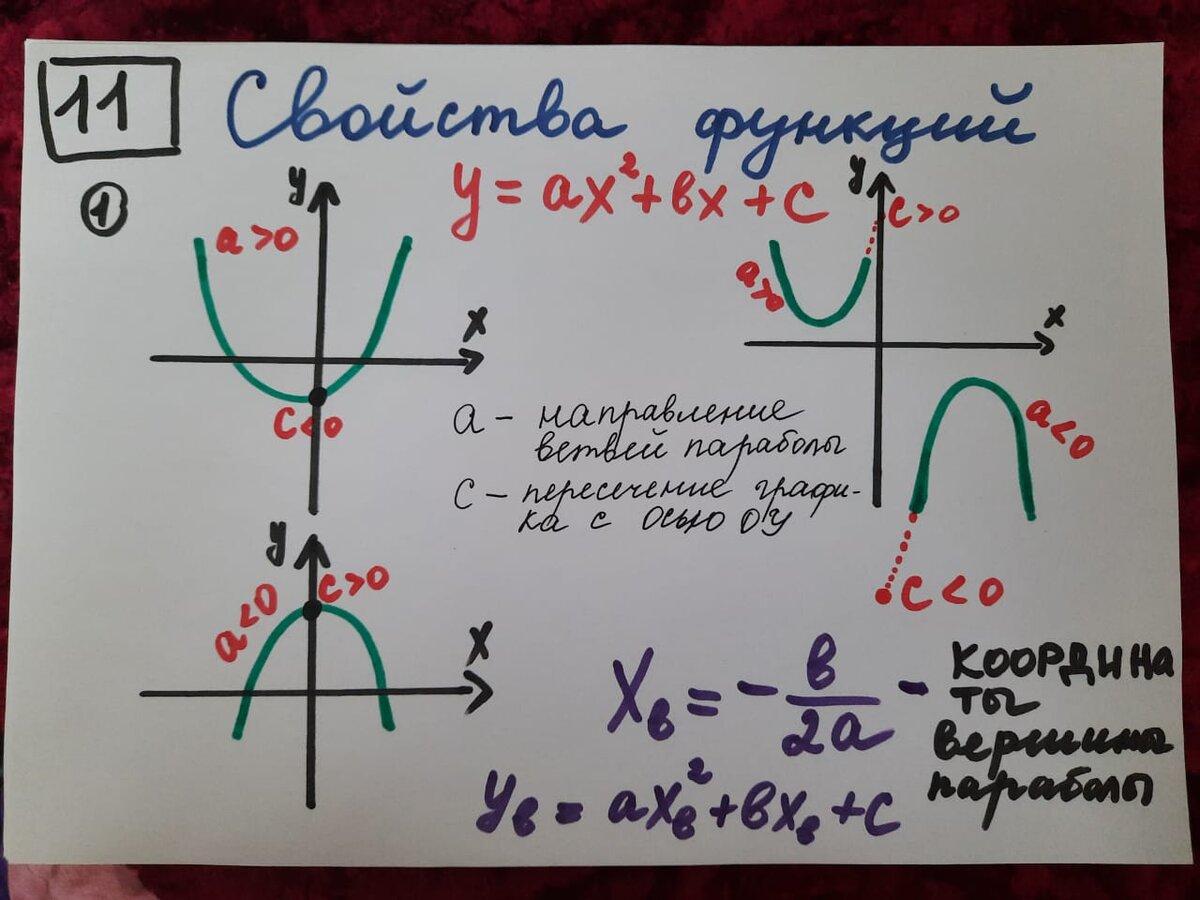 11
Свойства функций
1
y = ax²+вx+c
y
a>0
x
c<0
y
c>0
a>0
x
a<0
c<0
a – направление
ветвей параболы
c – пересечение графи-
ка с осью ОУ
y
a<0
c>0
x
Xв = - в/2a - КООРДИНА
ТЫ
вершины
параболы
yв = axв²+вxв+c